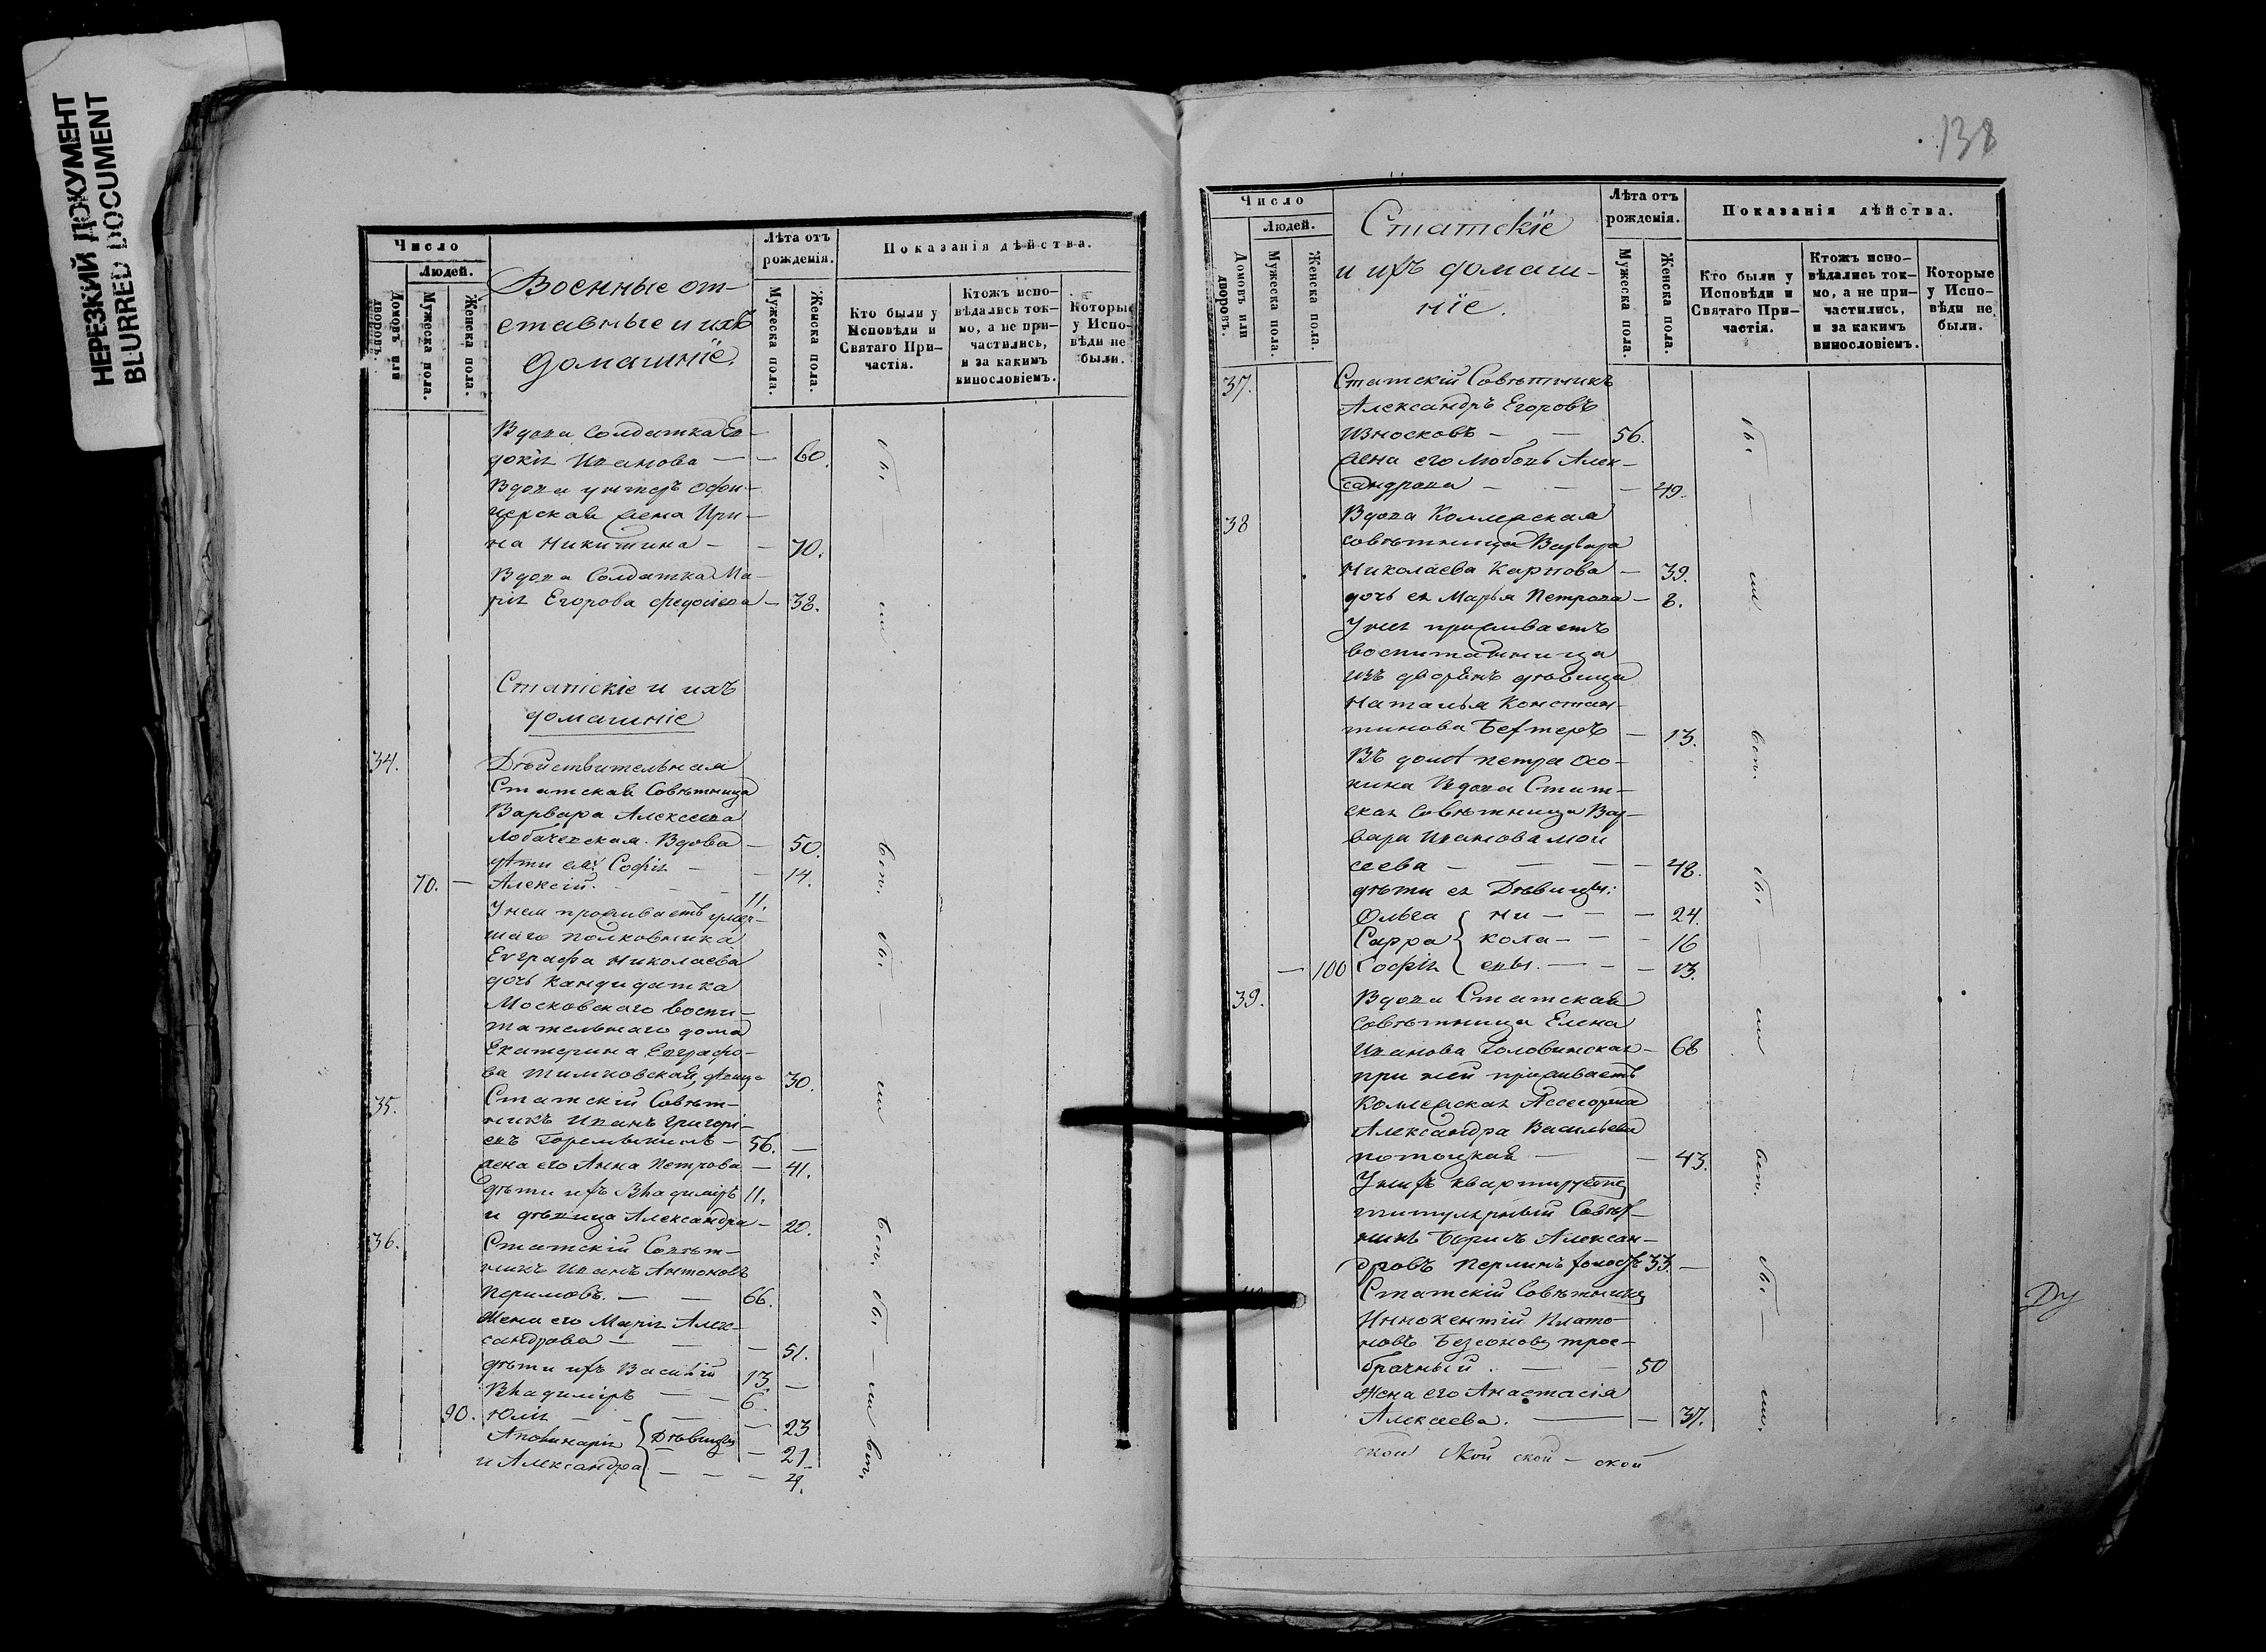 НЕРЕЗКИЙ ДОКУМЕНТ
BLURRED DOCUMENT
Число
Людей.
Домовъ или дворовъ.
Мужеска пола.
Женска пола.
Военные от-
ставные и ихъ
домашнїе.
Лѣта отъ рожденія.
Мужеска пола.
Женска пола.
Показанія дѣйства.
Кто были у Исповѣди и Святаго При-частія.
Ктожъ испо-вѣдались ток-мо, а не при-частились, и за какимъ винословіемъ.
Которые у Испо-вѣди не были.
Вдова солдатка Ев-
докія Иванова — — 60.
Вдова унтеръ офи-
церская жена Ири-
на Никитина — — 70.
Вдова Солдатка Ма-
рія Егорова — 38.
Статскіе и ихъ
домашніе
34. Дѣйствительная
Статская Совѣтница
Варвара Алексѣева
Лобачевская. Вдова — 50.
дѣти ея: Софія — — 14.
70. — Алексій. — — 11.
У нея проживаетъ умер-
шаго полковника
Евграфа Николаева
дочь кандидатка
Московскаго воспи-
тательнаго дома
Екатерина Евграфо-
ва девица 30.
35. Статскій Совѣт-
никъ Иванъ Григорі-
евъ Горемыкинъ — 56. —
жена его Анна Петрова — 41.
дѣти ихъ Владиміръ 11.
и дѣвица Александра — 20.
36. Статскій Совѣт-
никъ Иванъ Антоновъ
Перимовъ. — — 66.
Жена его Марія Алек-
сандрова — — — 51.
дѣти ихъ Василій 13. —
Владиміръ — — 6.
90. Юлія — — — 23
Аполинарія } Дѣвицы — 21
и Александра — — — 4.
бы — ли
вси.
бы — ли
вси.
бы — ли вси.
138
Число
Людей.
Домовъ или дворовъ.
Мужеска пола.
Женска пола.
Статскїе
и ихъ домаш-
нїе.
Лѣта отъ рожденія.
Мужеска пола.
Женска пола.
Показанія дѣйства.
Кто были у Исповѣди и Святаго При-частія.
Ктожъ испо-вѣдались ток-мо, а не при-частились, и за какимъ винословіемъ.
Которые у Испо-вѣди не были.
37. Статскій Совѣтникъ
Александръ Егоровъ
Износковъ — — 56.
жена его Любовь Алек-
сандрова — — — 49.
38 Вдова Коллежская
совѣтница Варвара
Николаева Карпова — 39.
дочь ея Марья Петрова — 8.
У нея проживаетъ
воспитанница
изъ дворянъ дѣвица
Наталья Констан-
тинова Бехтеръ — 13.
Въ домѣ Петра Осо-
кина Вдова Стат-
ская совѣтница Вар-
вара Иванова Мои
сеева — — — 48.
дѣти ея Дѣвицы:
Ольга { Ни — — — 24.
Сарра { кола — — — 16
— 100 Софія { евы. — — — 13.
39. Вдова Статская
совѣтница Елена
Иванова Головинская — 68
при ней проживаетъ
Коллежская Асесорша
Александра Васильева
Потоцкая — — 43.
У нихъ квартируетъ
титулярный Совѣт-
никъ Борисъ Алексан-
дровъ Перлинъ холостъ 33. —
Статскій Совѣтникъ
Иннокентій Плато-
новъ Безсоновъ трое-
брачный. — — 50
Жена его Анастасія
Алексеева. — — 37.
бы — ли
вси.
бы — ли
вси.
бы — ли.
Ду
ской ской ской — ской